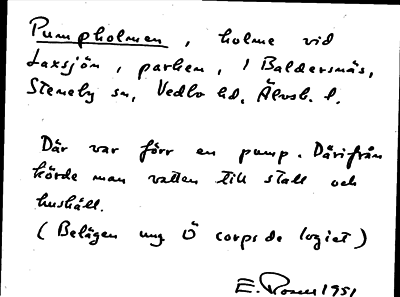 Pumpholmen, holme vid
Laxsjön, parken, i Baldersnäs,
Steneby sn, Vedbo hd, Älvsb. l.
Där var förr en pump. Därifrån
körde man vatten till stall och
hushåll.
(Belägen ung Ö corps de logiet)
E. Rosen 1951